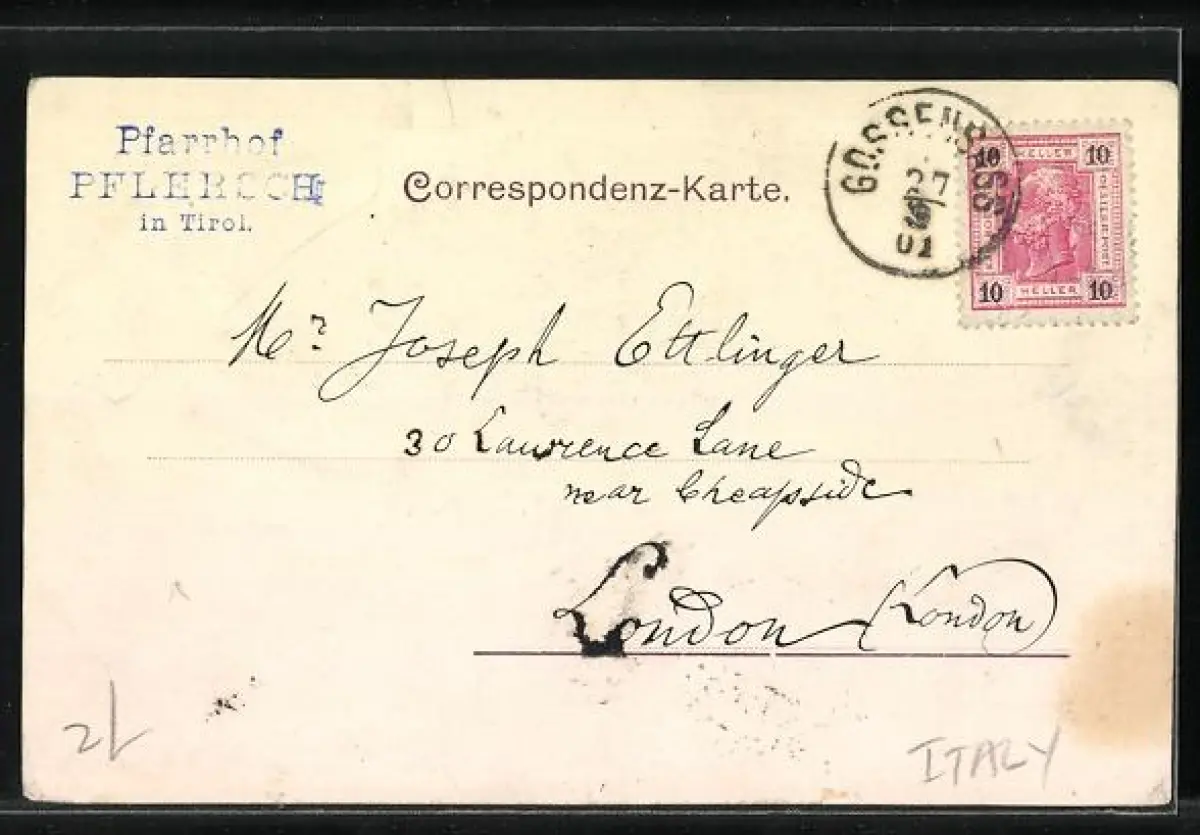 Pfarrhof
PFLERSCH
in Tirol.
Correspondenz-Karte.
GOSSENSASS
27
01
10 HELLER 10
10 HELLER 10
Mr. Joseph Ettlinger
30 Lawrence Lane
near Cheapside
London (London)
2/
ITALY